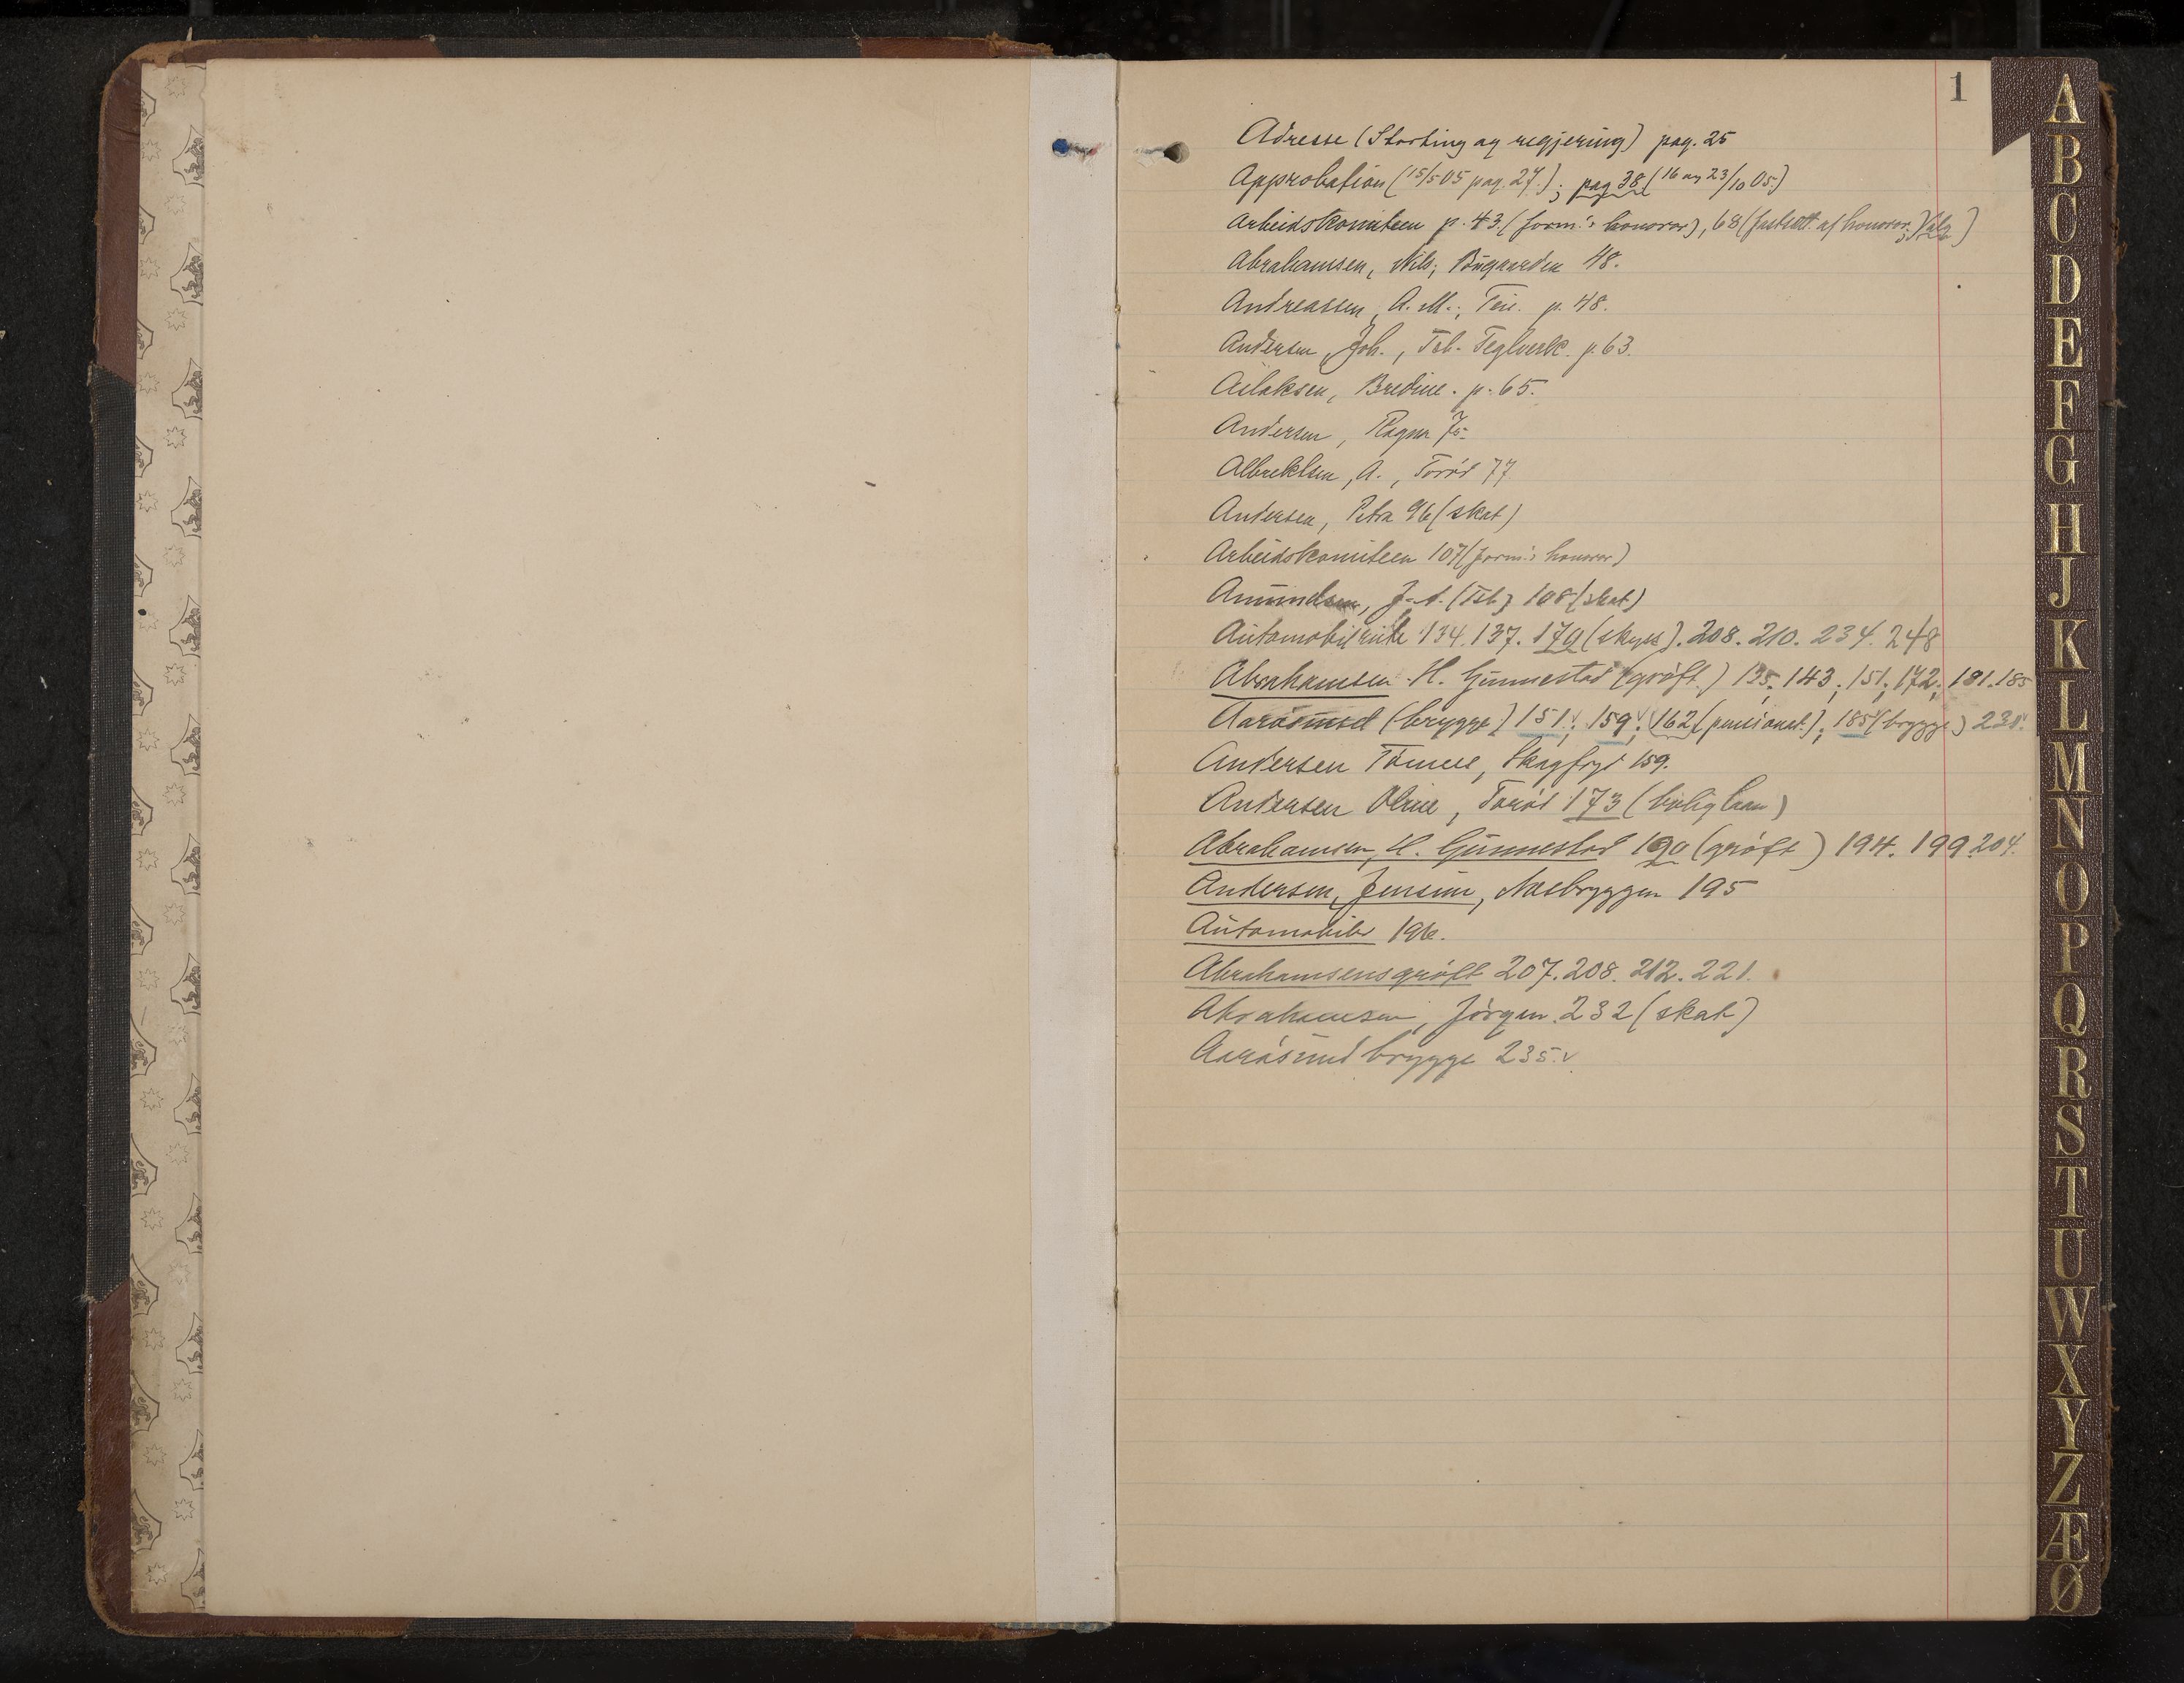 1
Adresse (Storting og regjering) pag. 25
Approbation (15/5 05 pag. 27.); pag 38 (16 og 23/10 05.)
Arbeidskomiteen p. 43 (form.s honorar), 68 (fastsætt. af honorar; Valg)
Abrahamsen, Nils; Bugaarden 48.
Andreassen, A. M.; Teie. p. 48.
Andersen, Joh., Tsb. Teglverk. p. 63.
Aslaksen, Bredine. p. 65.
Andersen, Ragna 75.
Albrektsen, A., Torød 77
Andersen, Petra 96 (skat)
Arbeidskomiteen 107 (form.s honorar)
Amundsen, J. A. (Tsb) 108 (skat)
Automobilrute 134. 137. 170 (skyss). 208. 210. 234. 248
Abrahamsen H. Gunnestad (grøft.) 135; 143; 151; 172; 181. 185
Aarøsund (brygge) 151; 159; 162 (pensionat.); 185 (brygge) 231.
Andersen Tomine, Skogfryd 159.
Andersen Oline, Torød 173 (boliglaan)
Abrahamsen, H. Gunnestad 190 (grøft) 194. 199. 204.
Andersen, Jensine, Næsbryggen 195
Automobiler 196.
Abrahamsens grøft 207. 208. 212. 221.
Abrahamsen, Jørgen. 232 (skat)
Aarøsund brygge 235. v.
A
B
C
D
E
F
G
H
J
K
L
M
N
O
P
Q
R
S
T
U
W
X
Y
Z
Æ
Ø